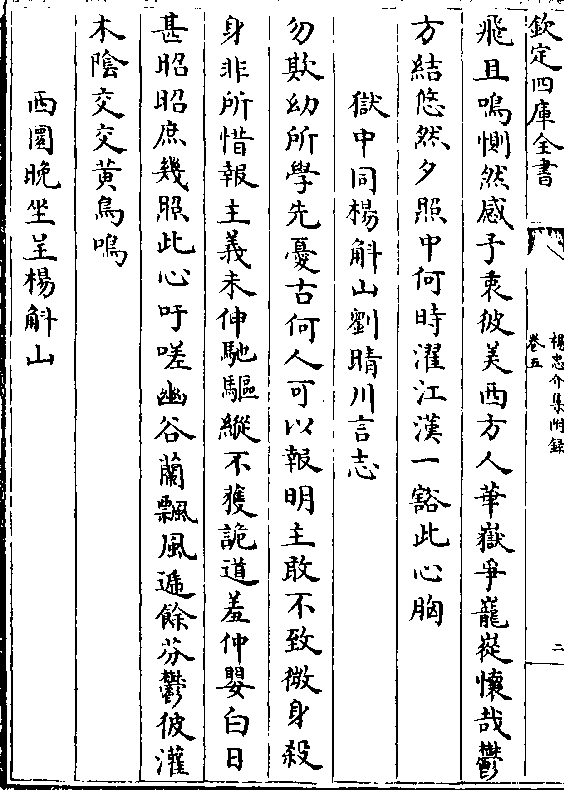 欽定四庫全書
楊忠介集附録
卷五
二
飛且鳴惻然感予衷彼美西方人華嶽爭巃嵸懷哉鬱
方結悠然夕照中何時濯江漢一豁此心胸
獄中同楊斛山劉晴川言志
勿欺幼所學先憂古何人可以報明主敢不致微身殺
身非所惜報主義未伸馳驅縱不獲詭道羞仲嬰白日
甚昭昭庶幾照此心吁嗟幽谷蘭飄風遞餘芬鬱彼灌
木陰交交黄鳥鳴
西圜晚坐呈楊斛山